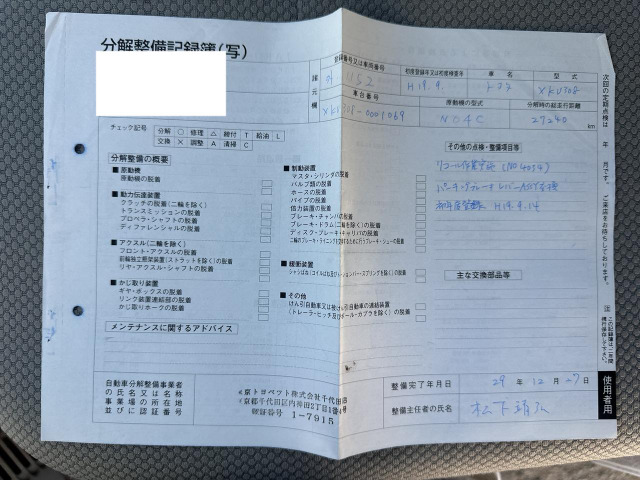 分解整備記録簿(写)
諸元欄
登録番号又は車両番号
1152
初度登録年又は初度検査年
H19.9.
車名
トヨタ
型式
XKU308
車台番号
XKU308-0001069
原動機の型式
N04C
分解時の総走行距離
27240
km
チェック記号
分解 ○ 修理 △ 締付 T 給油 L
交換 × 調整 A 清掃 C
分解整備の概要
■ 原動機
原動機の脱着
■ 動力伝達装置
クラッチの脱着(二輪を除く)
トランスミッションの脱着
プロペラ・シャフトの脱着
ディファレンシャルの脱着
■ アクスル(二輪を除く)
フロント・アクスルの脱着
前輪独立懸架装置(ストラットを除く)の脱着
リヤ・アクスル・シャフトの脱着
■ かじ取り装置
ギヤ・ボックスの脱着
リンク装置連結部の脱着
かじ取りホークの脱着
■ 制動装置
マスタ・シリンダの脱着
バルブ類の脱着
ホースの脱着
パイプの脱着
倍力装置の脱着
ブレーキ・チャンバの脱着
ブレーキ・ドラム(二輪を除く)の脱着
ディスク・ブレーキ・キャリパの脱着
二輪のブレーキ・ライニングを交換するために行うブレーキ・シューの脱着
■ 緩衝装置
■ その他
けん引自動車又は被けん引自動車の連結装置
(トレーラ・ヒッチ及びボール・カプラを除く)の脱着
その他の点検・整備項目等
リコール作業実施 (No4054)
パーキングブレーキレバーASSY交換
初度登録 H19.9.14
主な交換部品等
メンテナンスに関するアドバイス
自動車分解整備事業者
の氏名又は名称
事業場の所在地
並びに認証番号
京トヨペット株式会社千代田
京都千代田区内神田2丁目1番4号
認証番号 1-7915
整備完了年月日
29 年 12 月 27 日
整備主任者の氏名
松下
次回の定期点検は 年 月です。ご来店をお待ちしております。
この記録簿は一年間
携行保存して下さい。
使用者用